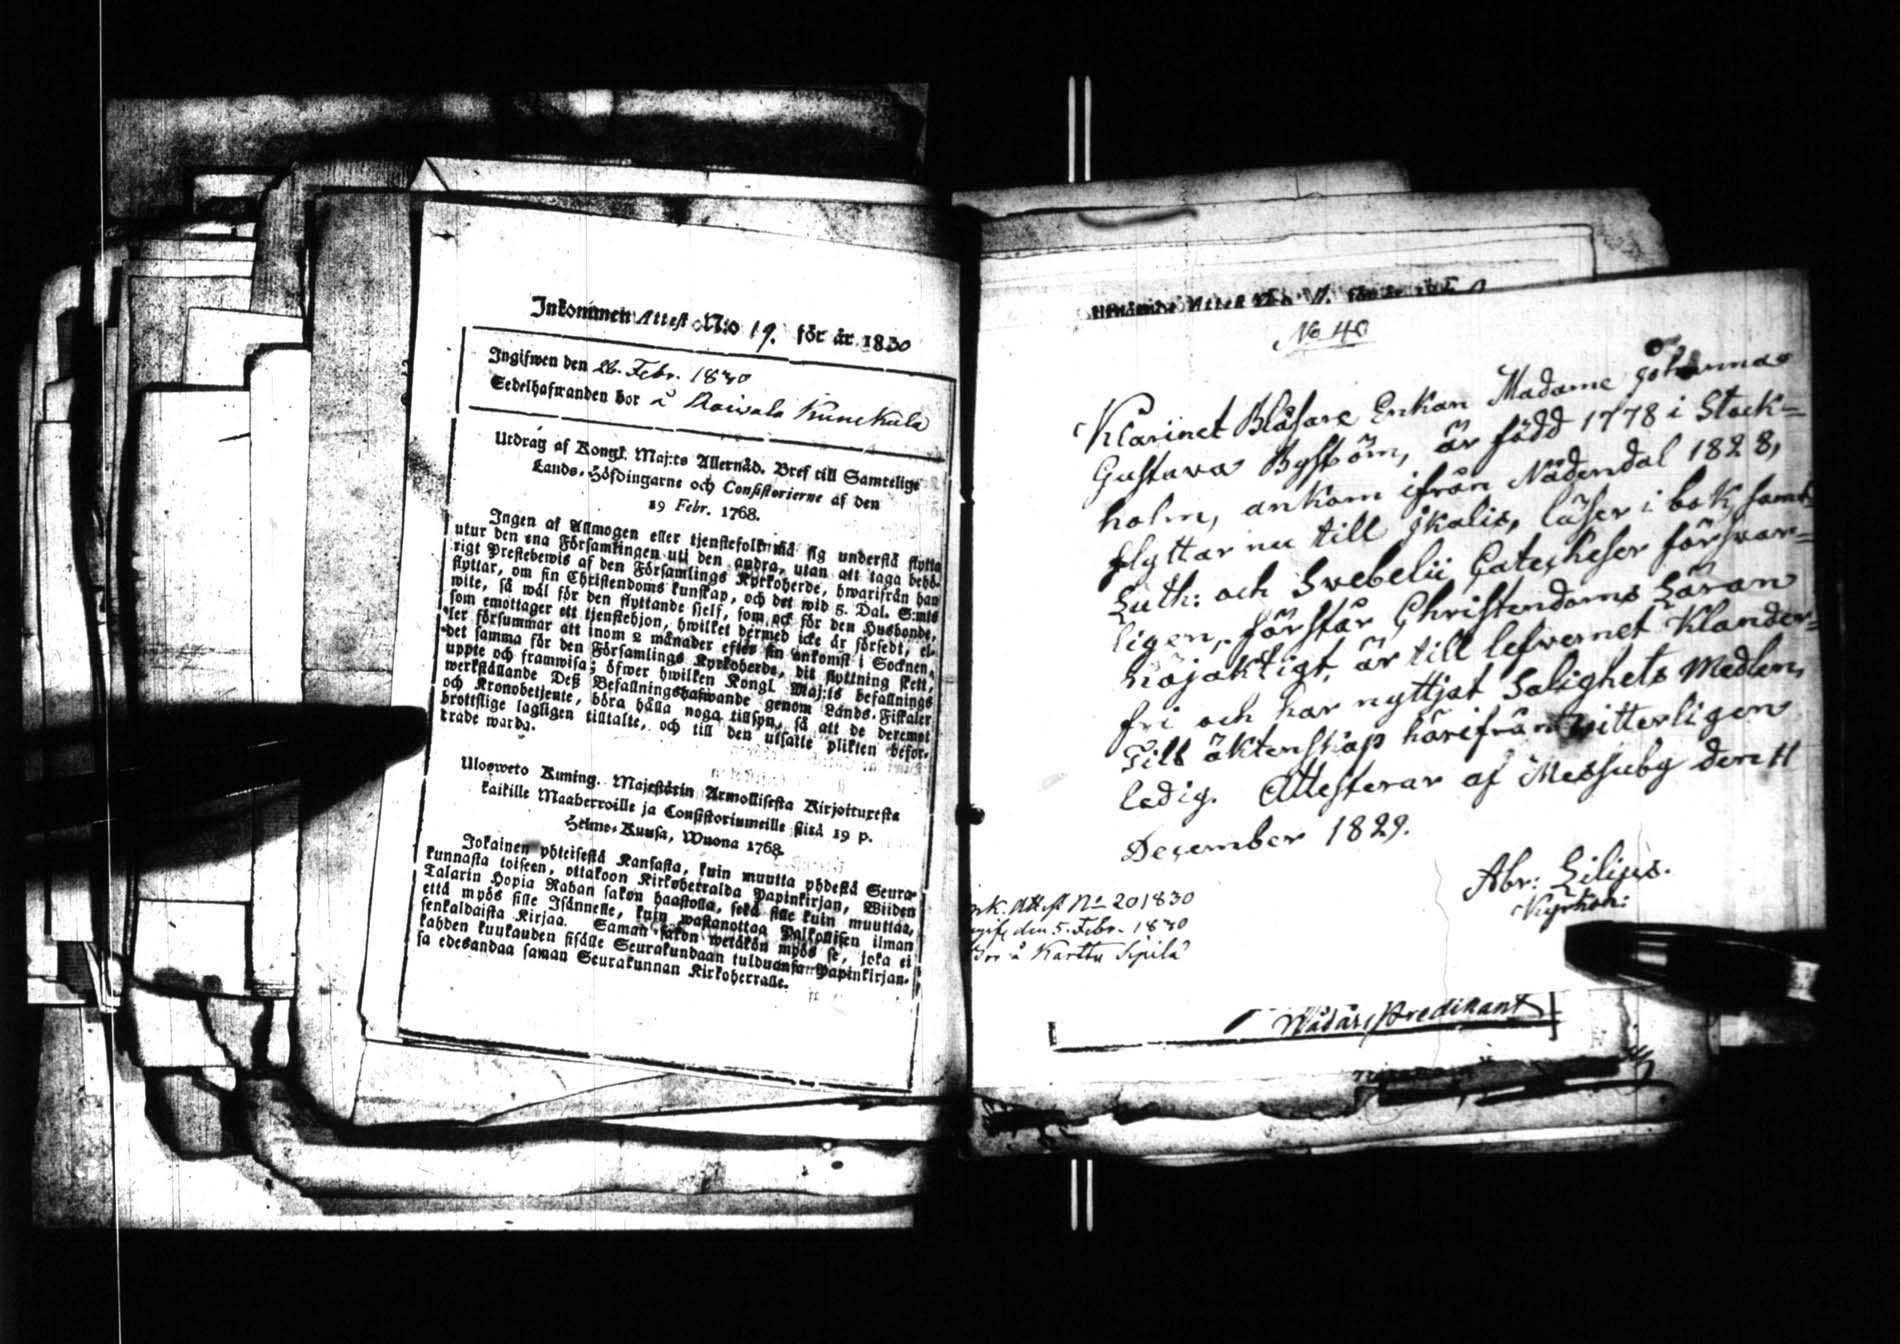 Inkommen Attest N:o 19. för år 1830
Ingifwen den 26. Febr. 1830
Sedelhafwanden bor å Raivala Kunckula
Utdrag af Kongl. Maj:ts Allernåd. Bref till Samtelige
Lands-Höfdingarne och Consistorierne af den
19 Febr. 1768.
Ingen af Allmogen eller tjenstefolk må sig understå flytta
utur den ena Församlingen uti den andra, utan att taga behö-
rigt Prestebewis af den Församlings Kyrkoherde, hwarifrån han
flyttar, om sin Christendoms kunskap, och det wid 5. Dal. S:mts
wite, så wäl för den flyttande sielf, som ock för den Husbonde,
som emottager ett tjenstehjon, hwilket dermed icke är försedt, el-
ler försummar att inom 2 månader efter sin ankomst i Socknen,
det samma för den Församlings Kyrkoherde, dit flyttning skett,
uppte och framwisa; öfwer hwilken Kongl. Maj:ts befallnings
werkställande Deß Befallningshafwande genom Lands-Fiskaler
och Kronobetjente, böra hålla noga tillsyn, så att de deremot
brottslige lagligen tilltalte, och till den utsatte plikten befor-
trade warda.
Ulosweto Kuning. Majestätin Armollisesta Kirjoituxesta
kaikille Maaherroille ja Consistoriumeille siitä 19 p.
Helme-Kuusa, Wuona 1768.
Jokainen yhteisestä Kansasta, kuin muutta yhdestä Seura-
kunnasta toiseen, ottakoon Kirkoherralda Papinkirjan, Wiiden
Talarin Hopia Rahan sakon haastolla, sekä sille kuin muuttaa,
että myös sille Isännelle, kuin wastanottaa Palkollisen ilman
senkaldaista Kirjaa. Saman sakon wetäkön myös se, joka ei
kahden kuukauden sisälle Seurakundaan tulduansa Papinkirjan-
sa edesandaa saman Seurakunnan Kirkoherralle.
No 40
Klarinet Blåsare Enkan Madame Johanna
Gustava Byström, är född 1778 i Stock=
holm, ankom ifrån Nådendal 1828,
flyttar nu till Ikalis, läser i bok samt
Luth: och Svebelii Catecheser försvar=
ligen, förstår Christendoms Läran
nöjaktigt, är till lefvernet klander=
fri och har nyttjat Salighets Medlen,
Till äktenskap härifrån vitterligen
ledig. Attesterar af Messuby den 11
December 1829.
Abr: Lilius.
Kyrkoh:
Attest No 20 1830
den 5. Febr. 1830
å Karttu Sipilä
Predikant